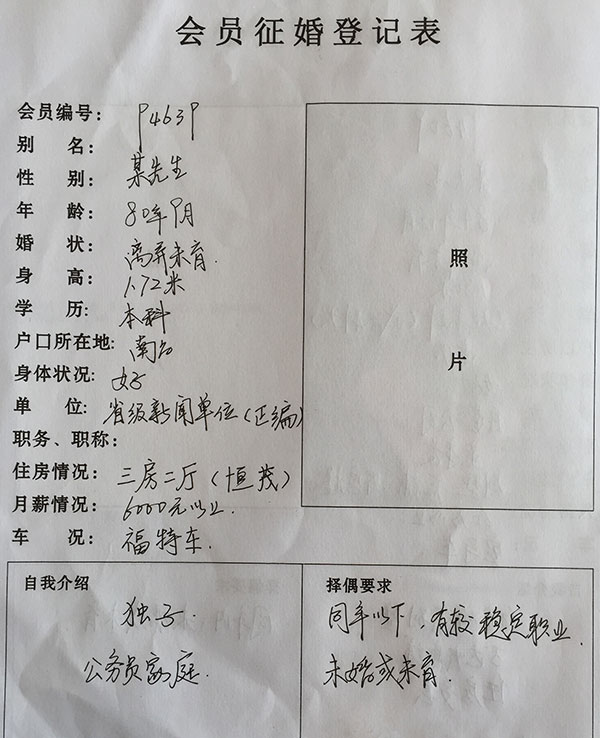 会员征婚登记表
会员编号: P463P
别 名: 某先生
性 别:
年 龄: 80年9月
婚 状: 离异未育.
身 高: 1.72米
学 历: 本科
户口所在地: 南昌
身体状况: 好
单 位: 省级新闻单位(正编)
职务、职称:
住房情况: 三房二厅(恒茂)
月薪情况: 6000元以上.
车 况: 福特车.
照
片
自我介绍
独子.
公务员家庭.
择偶要求
同年以下、有较稳定职业.
未婚或未育.